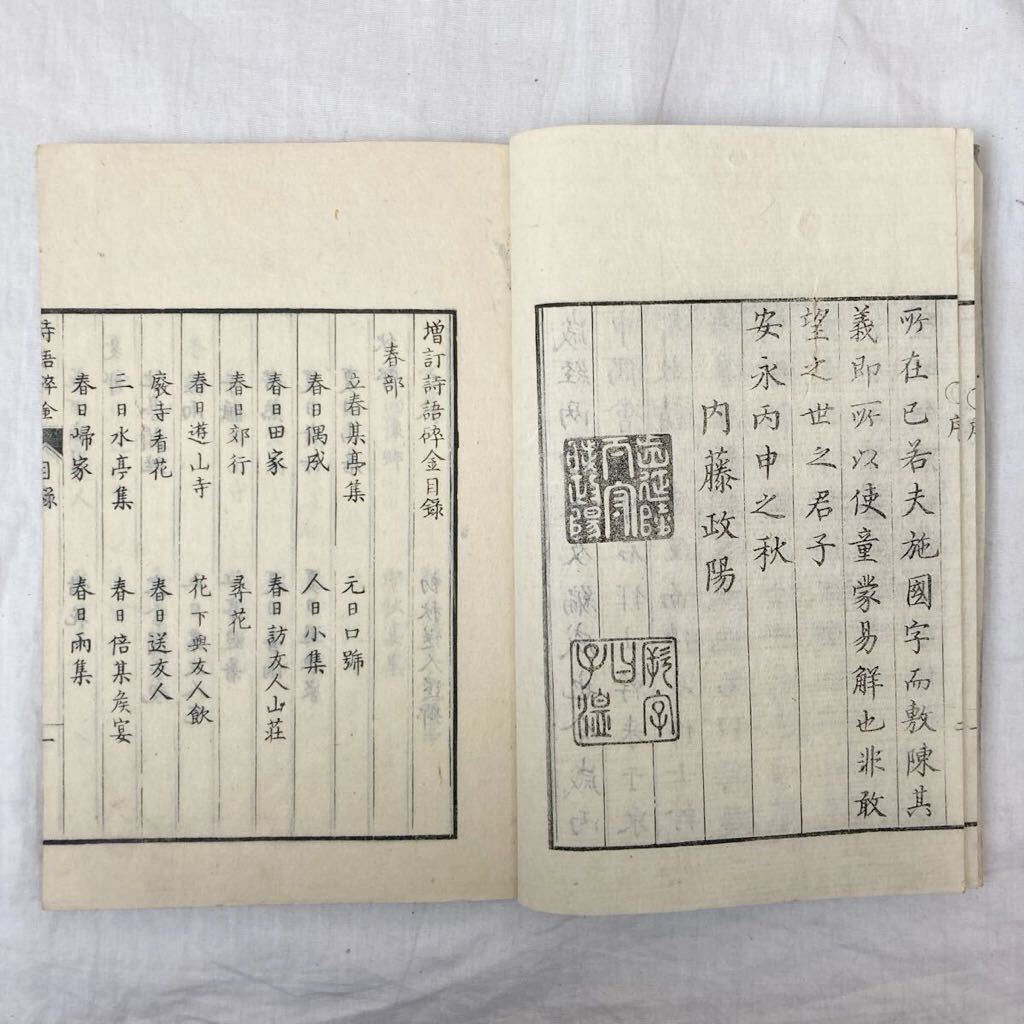 序
二
所在已若夫施國字而敷陳其
義即所以使童蒙易解也非敢
望之世之君子
安永丙申之秋
内藤政陽
政陽
字
曰
子溫
增訂詩語碎金目録
春部
立春某亭集
元日口號
春日偶成
人日小集
春日田家
春日訪友人山荘
春日郊行
尋花
春日遊山寺
花下與友人飲
廢寺看花
春日送友人
三日水亭集
春日倍某侯宴
春日歸家
春日雨集
詩語碎金
目録
一